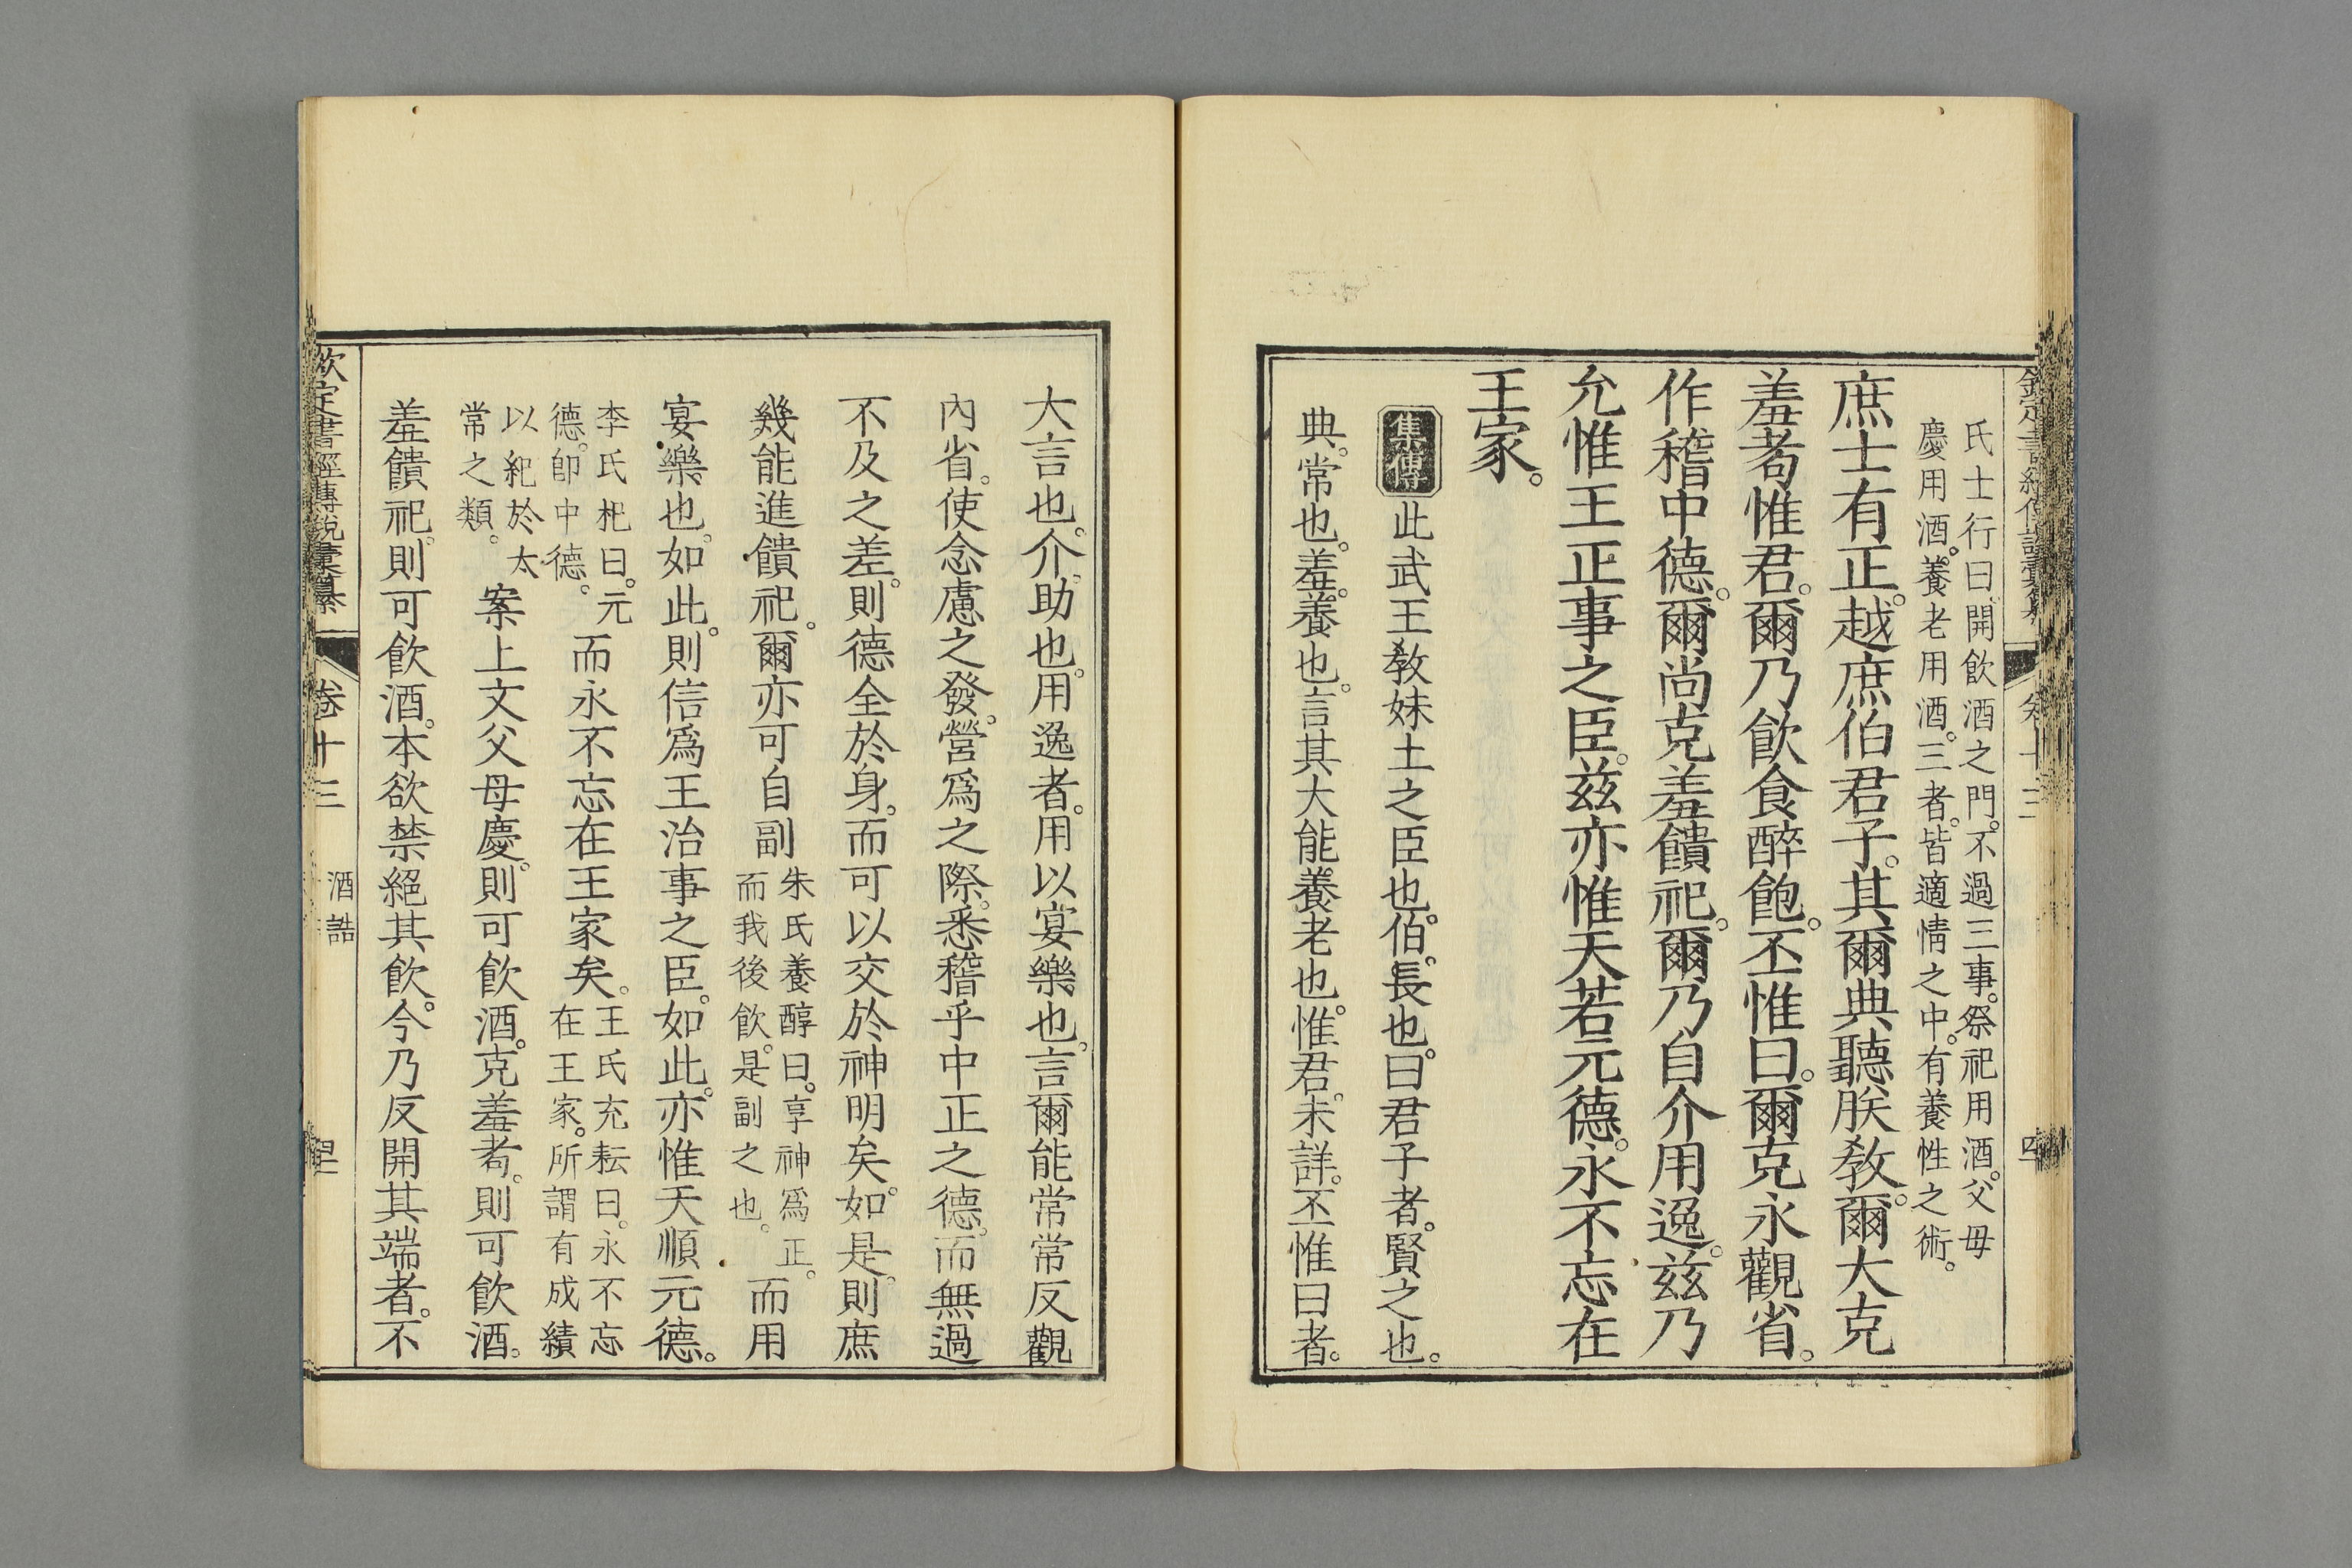 氏士行曰。開飲酒之門。不過三事。祭祀用酒。父母
慶用酒。養老用酒。三者。皆適情之中。有養性之術。
庶士有正。越庶伯君子。其爾典聽朕敎。爾大克
羞耇惟君。爾乃飮食醉飽。丕惟曰。爾克永觀省。
作稽中德。爾尚克羞饋祀。爾乃自介用逸。茲乃
允惟王正事之臣。茲亦惟天若元德。永不忘在
王家。
集傳 此武王敎妹土之臣也。伯。長也。曰君子者。賢之也。
典。常也。羞。養也。言其大能養老也。惟君。未詳。丕惟曰者。
大言也。介。助也。用逸者。用以宴樂也。言爾能常常反觀
內省。使念慮之發。營爲之際。悉稽乎中正之德。而無過
不及之差。則德全於身。而可以交於神明矣。如是。則庶
幾能進饋祀。爾亦可自副
朱氏養醇曰。享神爲正。
而我後飮。是副之也。
而用
宴樂也。如此。則信爲王治事之臣。如此。亦惟天順元德。
李氏杞曰。元
德。卽中德。
而永不忘在王家矣。
王氏充耘曰。永不忘
在王家。所謂有成績
以紀於太
常之類。
案上文父母慶。則可飮酒。克羞耇。則可飮酒。
羞饋祀。則可飮酒。本欲禁絕其飮。今乃反開其端者。不
欽定書經傳說彙纂
卷十三
酒誥